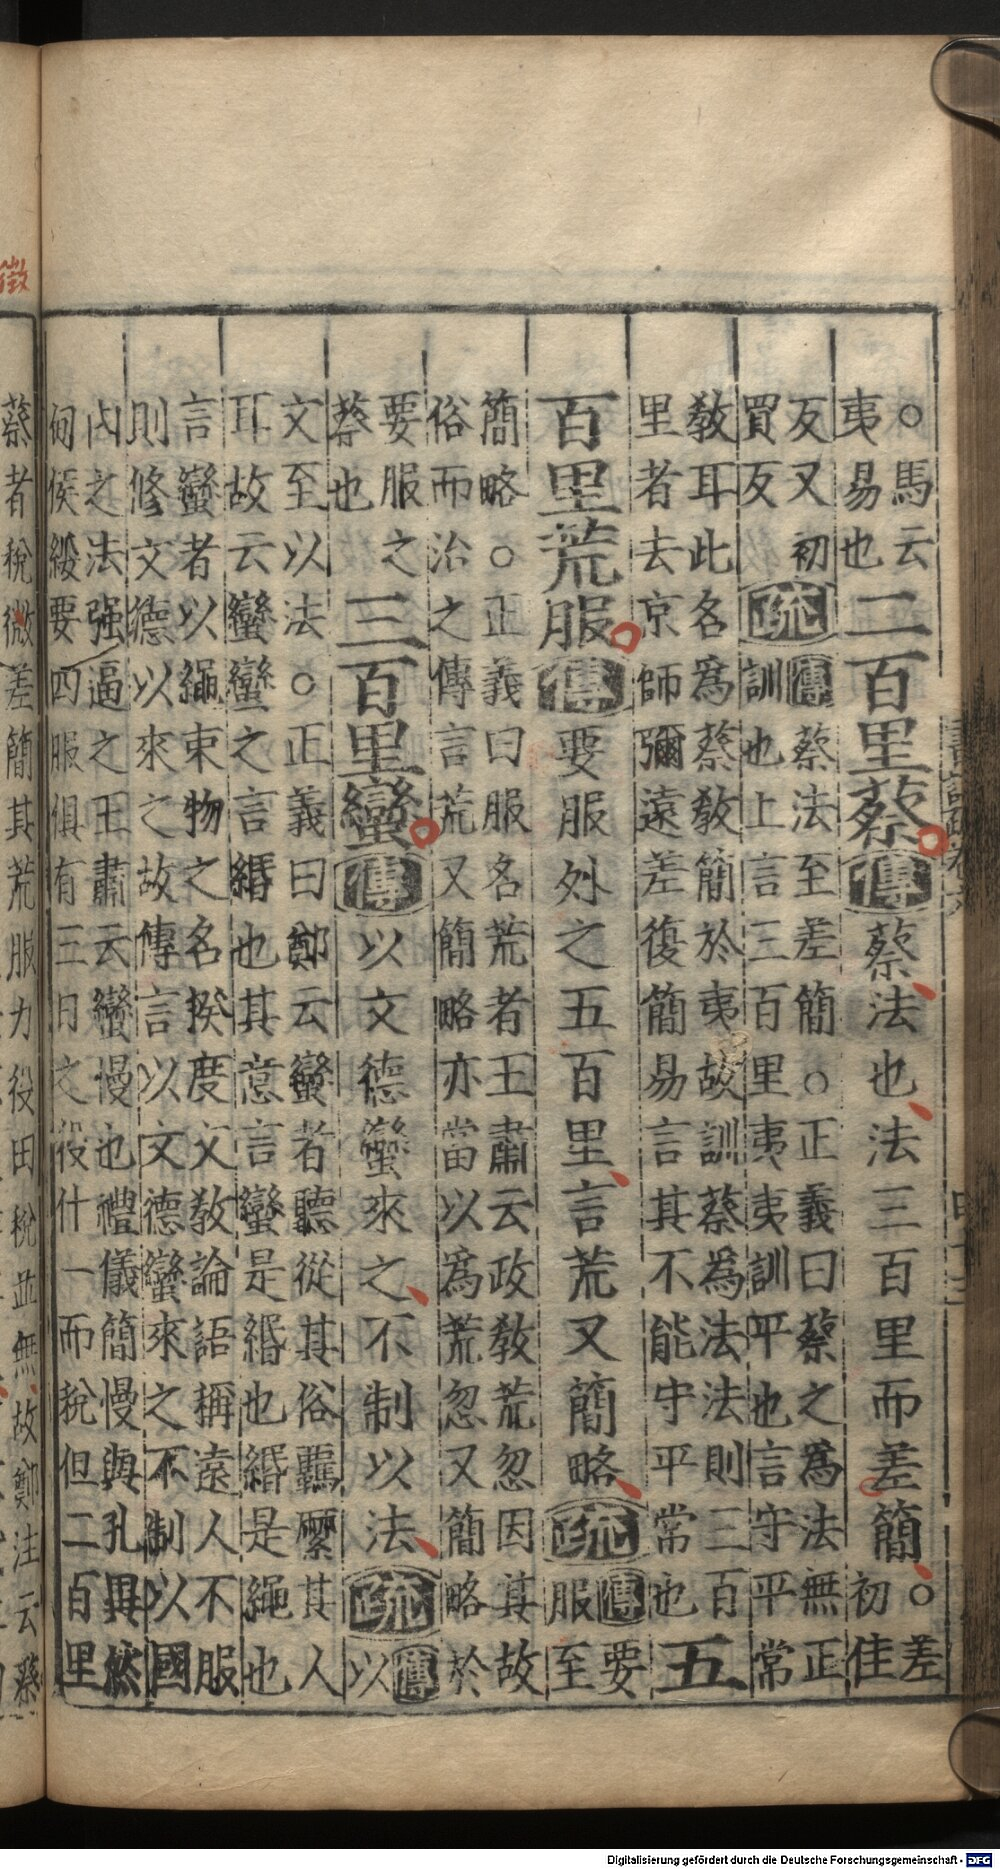 ○馬云
夷易也
二百里蔡傳蔡法也法三百里而差簡
○差
初佳
反又初
買反
疏
傳蔡法至差簡○正義曰蔡之為法無正
訓也上言三百里夷夷訓平也言守平常
教耳此名為蔡教簡於夷故訓蔡為法法則三百
里者去京師彌遠差復簡易言其不能守平常也
五
百里荒服傳要服外之五百里言荒又簡略疏
傳要
服至
簡略○正義曰服名荒者王肅云政教荒忽因其故
俗而治之傳言荒又簡略亦當以為荒忽又簡略於
要服之
蔡也
三百里蠻傳以文德蠻來之不制以法疏
傳
以
文至以法○正義曰鄭云蠻者聽從其俗羈縻其人
耳故云蠻蠻之言緡也其意言蠻是緡也緡是繩也
言蠻者以繩束物之名揆度文教論語稱遠人不服
則修文德以來之故傳言以文德蠻來之不制以國
內之法强逼之王肅云蠻慢也禮儀簡慢與孔異然
甸侯綏要四服俱有三日之役什一而稅但二百里
蔡者稅微差簡其荒服力役田稅並無故鄭注云蔡
徵
Digitalisierung gefördert durch die Deutsche Forschungsgemeinschaft - DFG